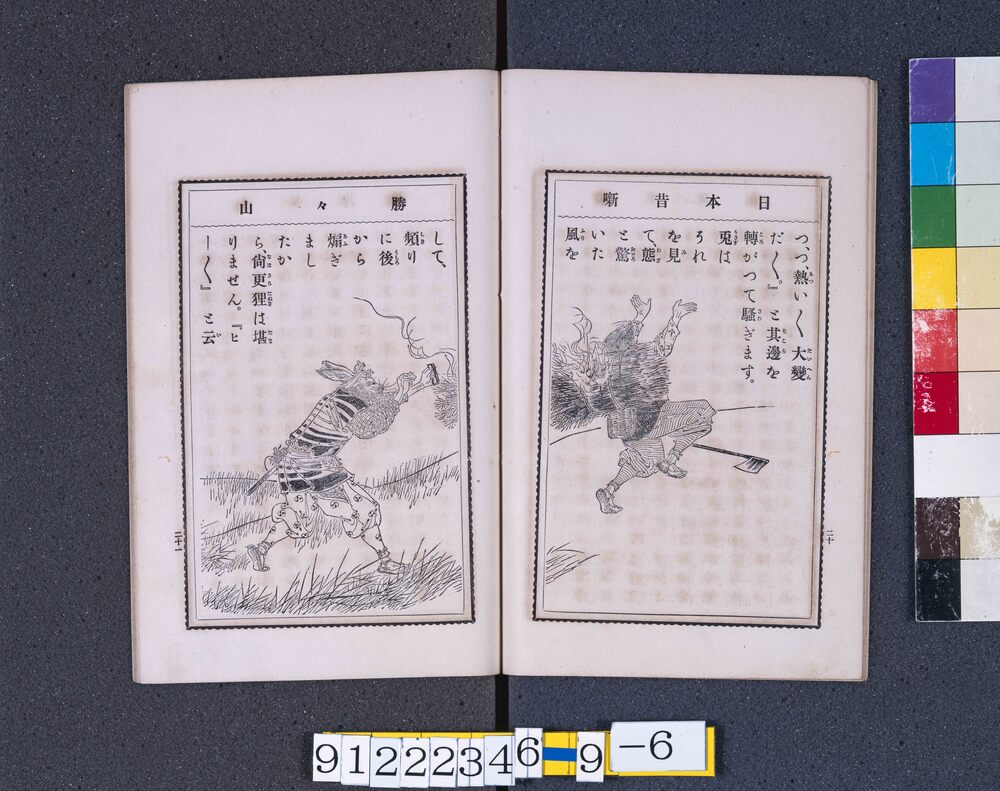 日本昔噺
つ、つ、熱い〱大變
だ〱。』と其邊を
轉がつて騒ぎます。
兎は
それ
を見
て、態
と驚
いた
風を
二十
勝々山
して、
頻り
に後
から
煽ぎ
まし
たか
ら、尙更狸は堪
りません。『ヒ
ー〱』と云
二十一
912223469-6